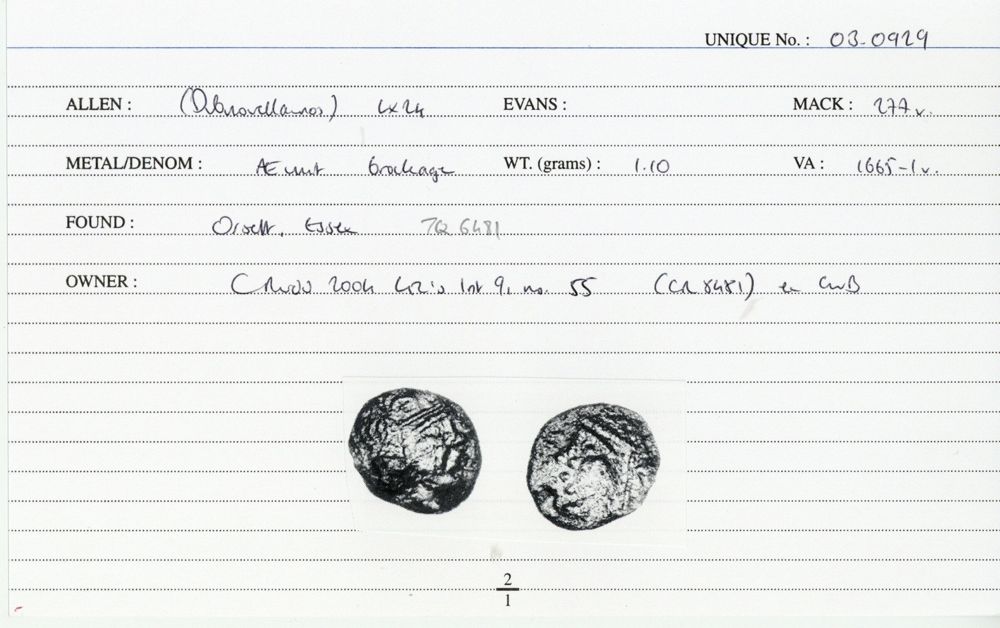 UNIQUE No.: 03-0929
ALLEN: (Dubnovellaunos) LX24 EVANS: MACK: 277v.
METAL/DENOM: Æ unit brockage WT. (grams): 1.10 VA: 1665-1v.
FOUND: Orsett, Essex TQ 6481
OWNER: 2004 list 9, no. 55 (CR 8481) ex CWB
2
1